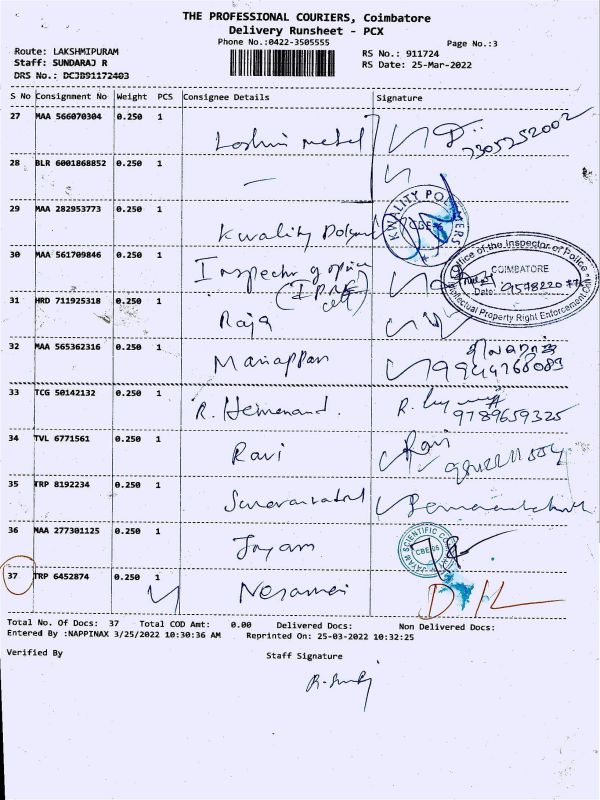 THE PROFESSIONAL COURIERS, Coimbatore
Delivery Runsheet - PCX
Phone No.:0422-3505555
Page No.:3
Route: LAKSHMIPURAM
Staff: SUNDARAJ R
DRS No.: DCJB91172403
RS No.: 911724
RS Date: 25-Mar-2022
S No Consignment No Weight PCS Consignee Details Signature
27 MAA 566070304 0.250 1 7305252002
28 BLR 6001868852 0.250 1 —
29 MAA 282953773 0.250 1 Kwality KWALITY POLYMERS CBE
30 MAA 561709846 0.250 1 Inspector of police
(IPR cell)
Office of the Inspector of Police
COIMBATORE
Date:
Intellectual Property Right Enforcement Cell
31 HRD 711925318 0.250 1 Raja
32 MAA 565362316 0.250 1 Mariappan
33 TCG 50142132 0.250 1 R. Hemanand. R. 9789659325
34 TVL 6771561 0.250 1 Ravi Ravi
35 TRP 8192234 0.250 1
36 MAA 277301125 0.250 1 Jayam JAYAM SCIENTIFIC CO CBE
37 TRP 6452874 0.250 1 Nesamani
Total No. Of Docs: 37 Total COD Amt: 0.00 Delivered Docs: Non Delivered Docs:
Entered By :NAPPINAX 3/25/2022 10:30:36 AM Reprinted On: 25-03-2022 10:32:25
Verified By Staff Signature